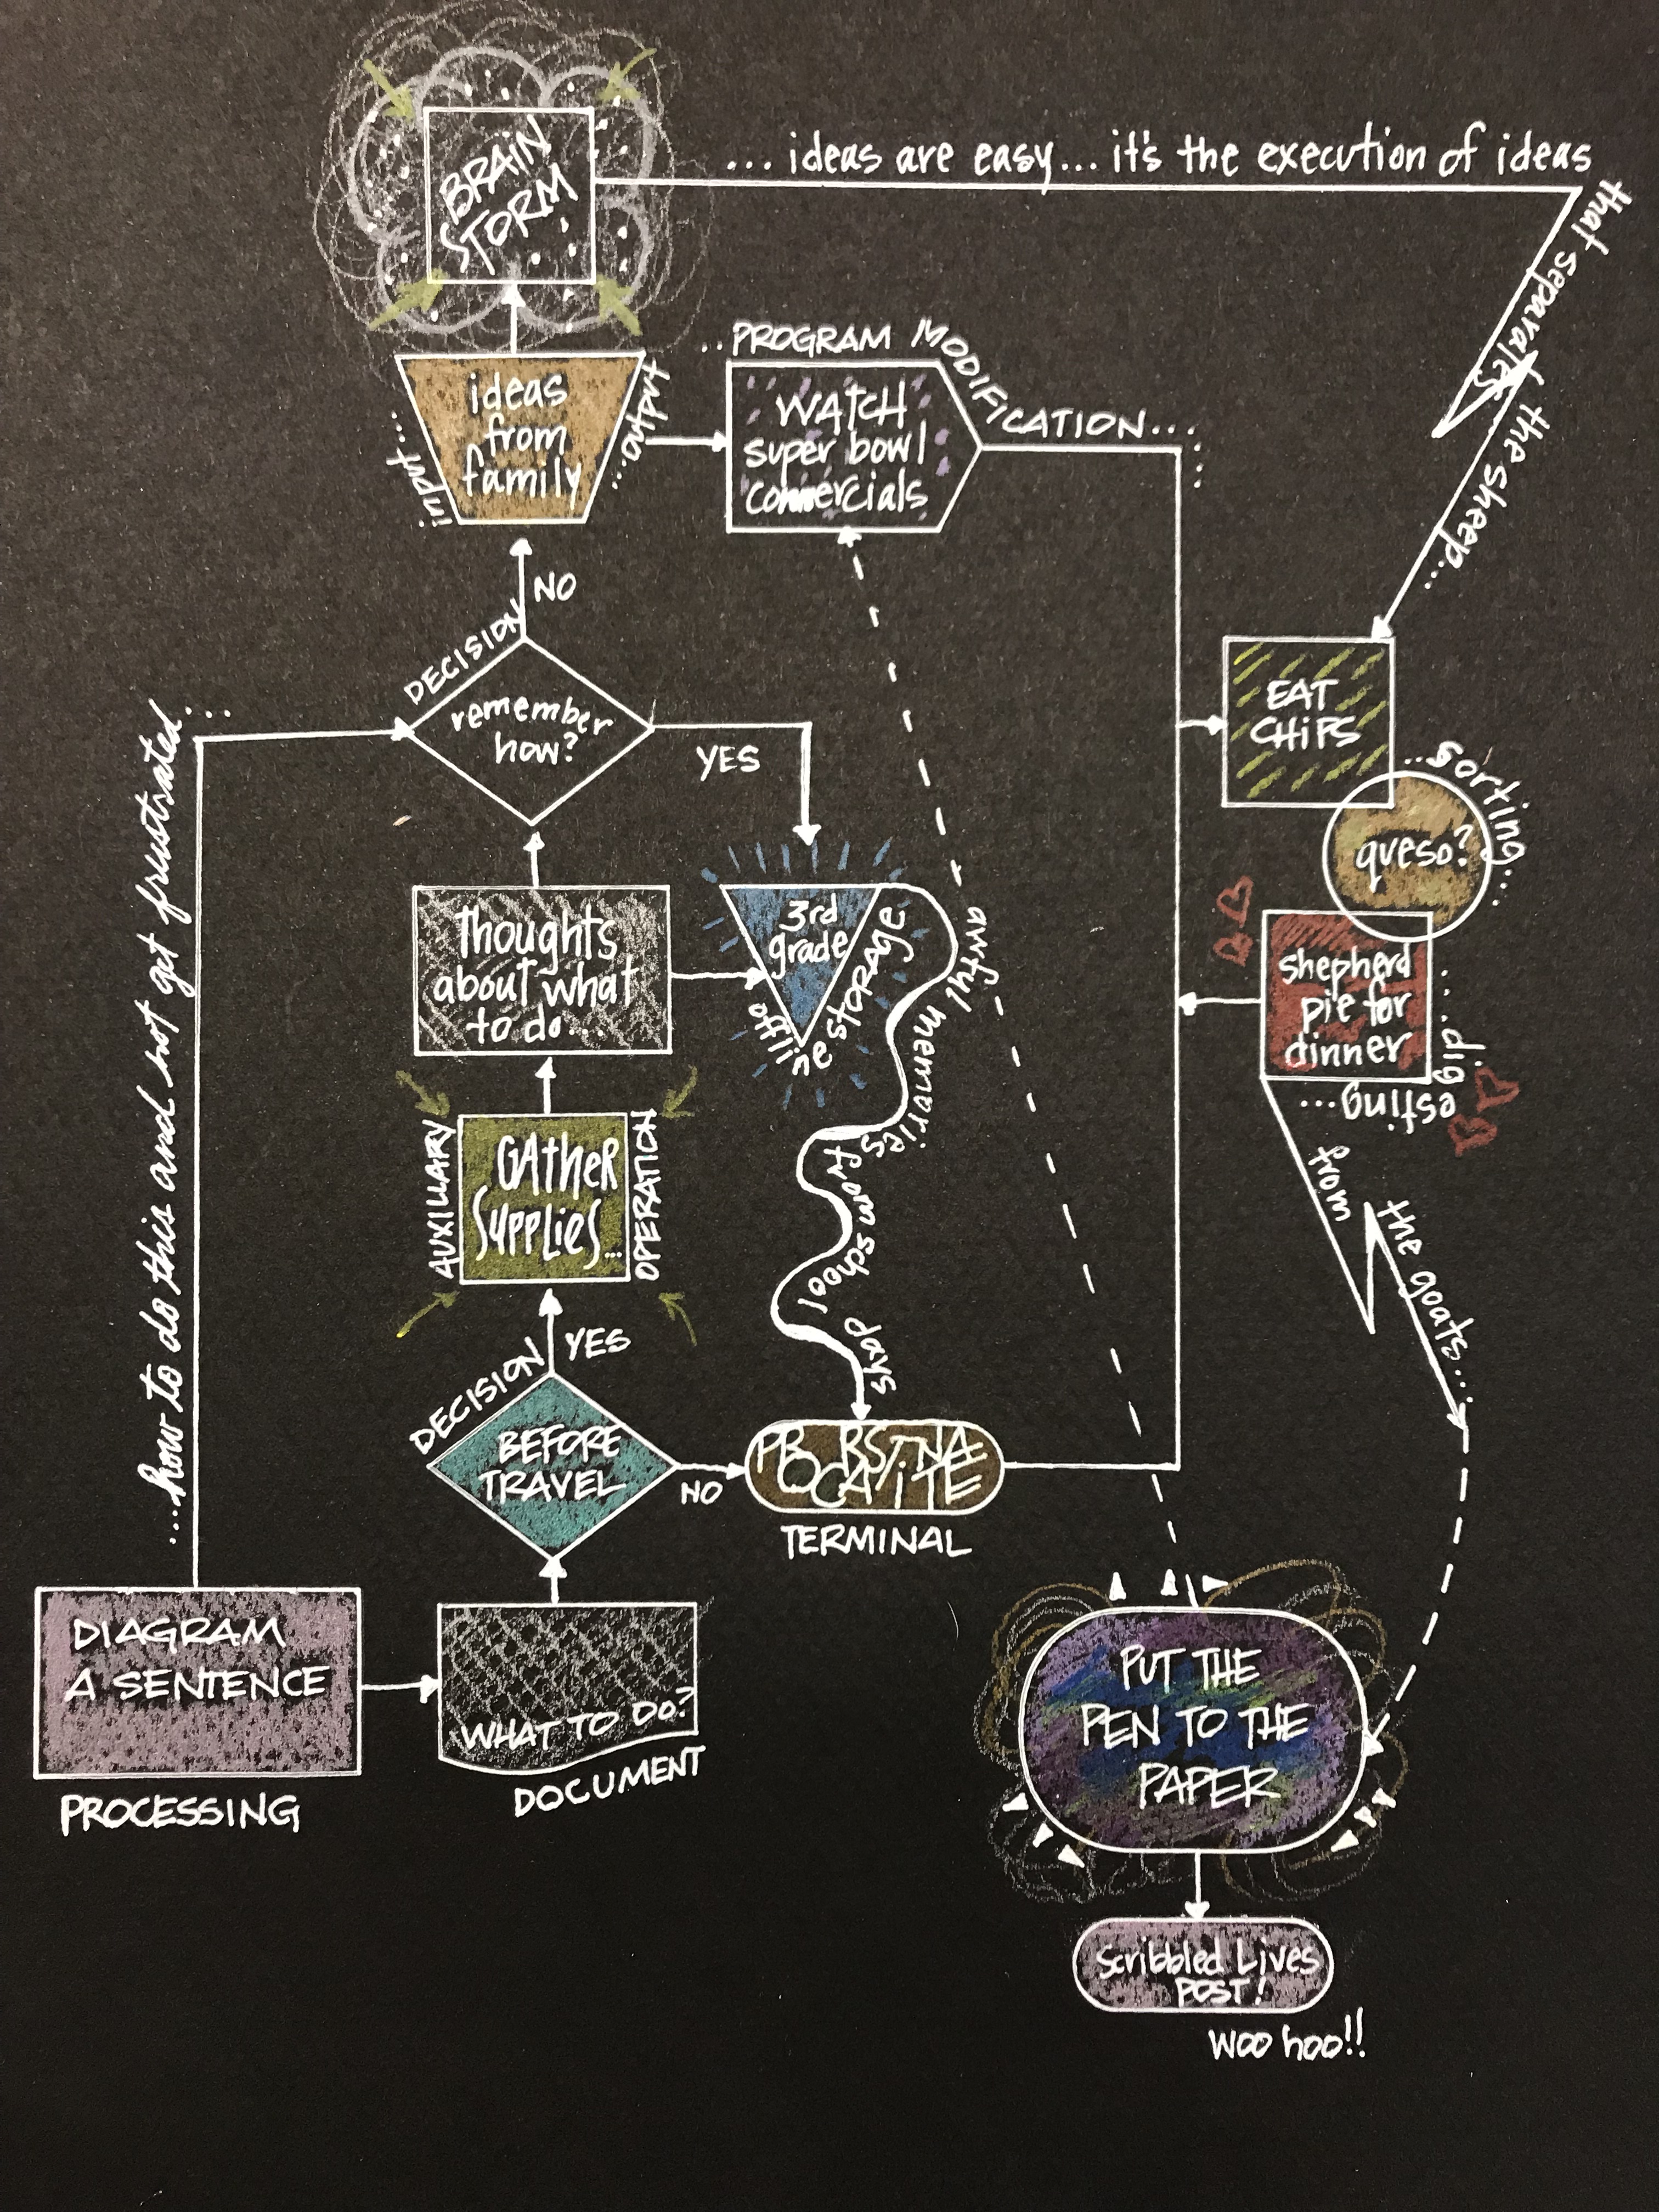 BRAIN
STORM
... ideas are easy... it's the execution of ideas
that separates the sheep...
ideas
from
family
input...
output...
..PROGRAM MODIFICATION...
WATCH
super bowl
commercials
NO
DECISION
remember
how?
YES
EAT
CHIPS
...sorting...
queso?
shepherd
pie for
dinner
...digesting...
from the goats...
3rd
grade
offline storage
awful memories from school daks
thoughts
about what
to do...
AUXILIARY
GATHER
SUPPLIES...
OPERATION
DECISION
YES
BEFORE
TRAVEL
NO
TERMINAL
....how to do this and not get frustrated...
DIAGRAM
A SENTENCE
PROCESSING
WHAT TO DO?
DOCUMENT
PUT THE
PEN TO THE
PAPER
Scribbled Lives
POST!
Woo hoo!!